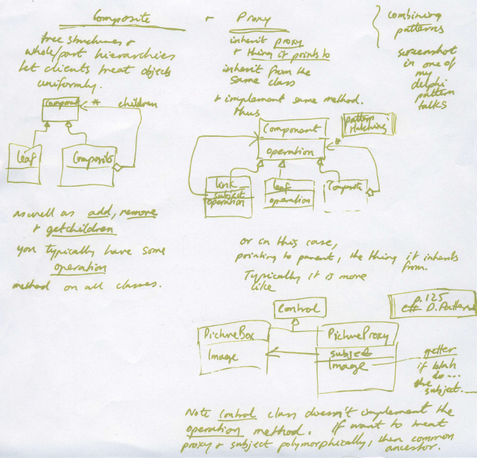 Composite
tree structures +
whole/part hierarchies
let clients treat objects
uniformly.
component
* children
Leaf
Composite
as well as add, remove
+ getchildren
you typically have some
operation
method on all classes.
+ Proxy
inherit proxy
+ thing it points to
inherit from the
same class
+ implement same method.
thus
Component
operation
pattern
Hatching
*
Link
subject
operation
Leaf
operation
Composite
or in this case,
pointing to parent, the thing it inherits
from.
Typically it is more
like
Control
p.125
C# D. Patterns
PictureBox
Image
PictureProxy
subject
Image
getter
if blah
do...
the
subject...
Note Control class doesn't implement the
operation method. If want to treat
proxy + subject polymorphically, then common
ancestor.
combining
patterns
screenshot
in one of
my
delphi
pattern
talks